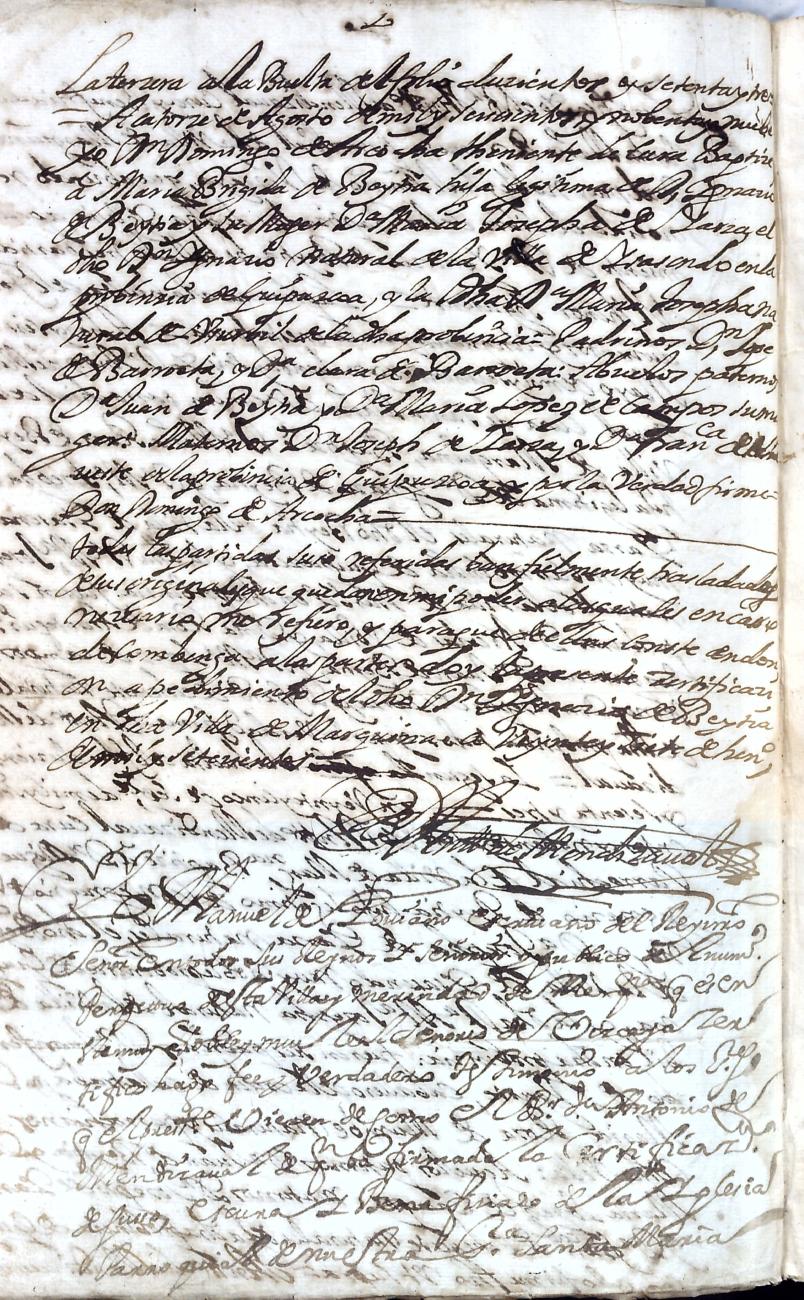 La tersera a la Buelta del folio duzientos y setenta y tres
= A catorze de Agosto de mil y seiscientos y nobenta y nueve
yo Dn Domingo de Arcocha theniente de Cura Baptize
a María Brigida de Beytia hija legitima de Dn Ygnacio
de Beytia y su Muger Da Maria Josepha de Zarza, el
dho Dn Ygnacio natural de la Villa de en la
probincia de Guipuzcoa, y la dha Da Maria Josepha na
tural de Usurbil de la dha probincia = Padrinos Dn Jope
de Barroeta, y Da Clara de Barroeta: Abuelos paternos
Dn Juan de Beytia y Da Maria Lopez de Campos su mu
ger: Maternos Dn Joseph de Zarza, y Da Franca de
en la probincia de Guipuzcoa y por la Verdad firme =
Don Domingo de Arcocha =
todas las partidas suso referidas ban fielmente trasladadas
de sus originales que quedan en mi poder a los quales en caso
necesario me refiero, y para que de ello conste en don
de combenga a las partes doy la presente zertificaci
on a pedimiento del dho Dn Ygnacio de Beytia
en esta Villa de Marquina a de hen.o
de mil y setecientos
Dn Antto de Mendizaval
Yo Manuel de escriuano del Rey nro
Señor en todos sus Reynos y señorios y publico del num.o
perpetuo desta Villa y merindad de Marq.na q es en
este muy noble y muy leal Señorio de Vizcaya Zer
tifico hago fee y Verdadero testimonio a los S.res
q el presente Vieren de como el Sr Dn Antonio de
Mendizaval de quien ba firmada la Certificaz.n
de suso, es cura y Beneficiado de la Yglesia
Parroquial de nuestra S.ra Santa Maria